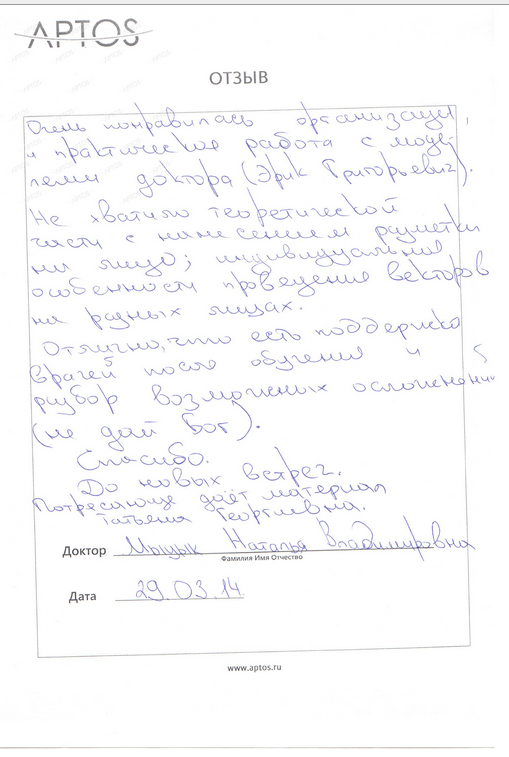 APTOS
ОТЗЫВ
Очень понравилась организация
и практическая работа с моде-
лями доктора (Эрик Григорьевич).
Не хватило теоретической
части с нанесением разметки
на лицо; индивидуальные
особенности проведения векторов
на разных лицах.
Отлично, что есть поддержка
врачей после обучения и
разбор возможных осложнений
(не дай Бог).
Спасибо.
До новых встреч.
Потрясающе даёт материал
Татьяна Георгиевна.
Доктор Мыцык Наталья Владимировна
Фамилия Имя Отчество
Дата 29.03.14.
www.aptos.ru